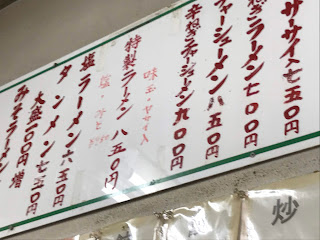 サーサイメン七五〇円
ねぎラーメン七〇〇円
チャーシューメン八五〇円
辛ねぎチャーシューメン九〇〇円
味玉・ヤサイ入
特製ラーメン 八五〇円
塩ラーメン六五〇円
タンメン七五〇円
大盛一〇〇円増
みそラーメン
炒